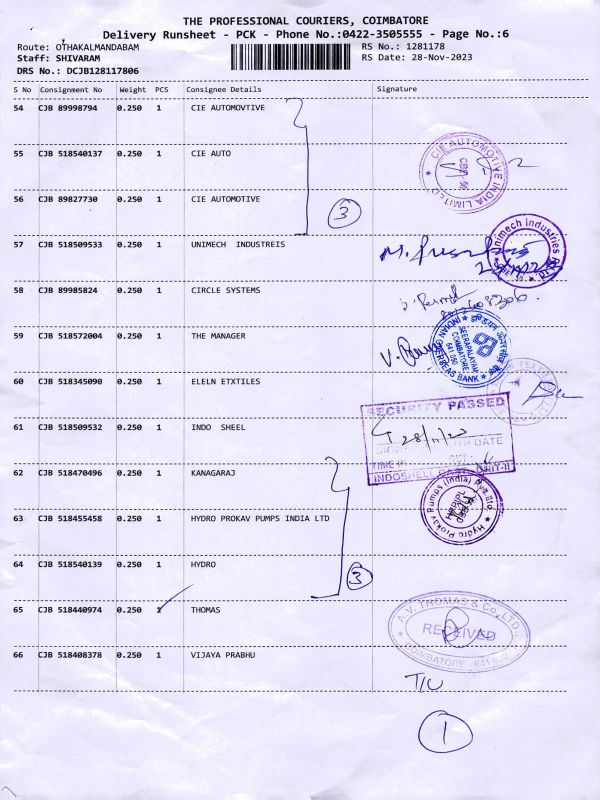 THE PROFESSIONAL COURIERS, COIMBATORE
Delivery Runsheet - PCK - Phone No.:0422-3505555 - Page No.:6
Route: OTHAKALMANDABAM RS No.: 1281178
Staff: SHIVARAM RS Date: 28-Nov-2023
DRS No.: DCJB128117806
S No Consignment No Weight PCS Consignee Details Signature
54 CJB 89998794 0.250 1 CIE AUTOMOVTIVE
55 CJB 518540137 0.250 1 CIE AUTO
CIE AUTOMOTIVE INDIA LIMITED
56 CJB 89827730 0.250 1 CIE AUTOMOTIVE
3
57 CJB 518509533 0.250 1 UNIMECH INDUSTREIS
Unimech Industries
58 CJB 89985824 0.250 1 CIRCLE SYSTEMS
59 CJB 518572004 0.250 1 THE MANAGER
INDIAN OVERSEAS BANK
SEERAPALAYAM
COIMBATORE
641 050
60 CJB 518345090 0.250 1 ELELN ETXTILES
SECURITY PASSED
61 CJB 518509532 0.250 1 INDO SHEEL
28/11/23
DATE
TIME IN
UNIT-II
62 CJB 518470496 0.250 1 KANAGARAJ
63 CJB 518455458 0.250 1 HYDRO PROKAV PUMPS INDIA LTD
Hydro Prokav Pumps (India) Pvt Ltd
64 CJB 518540139 0.250 1 HYDRO
3
65 CJB 518440974 0.250 1 THOMAS
A.V. THOMAS & Co.,LTD.,
RECEIVED
COIMBATORE
66 CJB 518408378 0.250 1 VIJAYA PRABHU
T/U
1